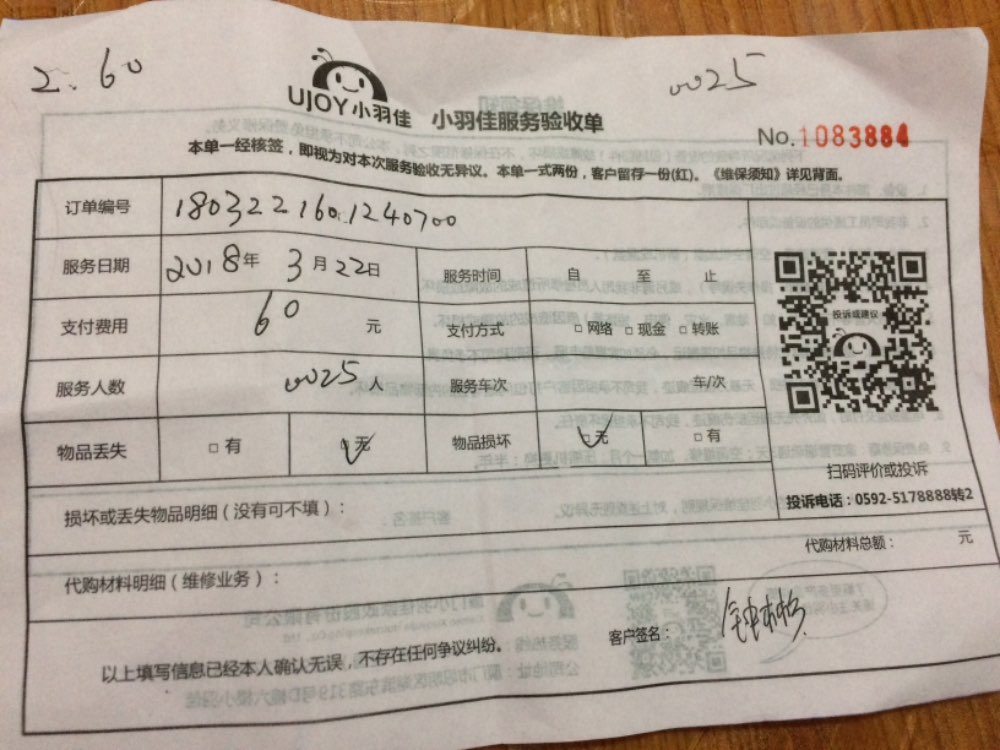 2.60
0025
UJOY小羽佳 小羽佳服务验收单
No.1083884
本单一经核签，即视为对本次服务验收无异议。本单一式两份，客户留存一份(红)。《维保须知》详见背面。
订单编号 1803221601240700
服务日期 2018年 3月22日 服务时间 自 至 止
支付费用 60 元 支付方式 □网络 □现金 □转账
服务人数 0025人 服务车次 车/次
物品丢失 □有 □无 物品损坏 □无 □有
投诉或建议
扫码评价或投诉
投诉电话：0592-5178888转2
损坏或丢失物品明细（没有可不填）：
代购材料总额： 元
代购材料明细（维修业务）：
客户签名：
以上填写信息已经本人确认无误，不存在任何争议纠纷。